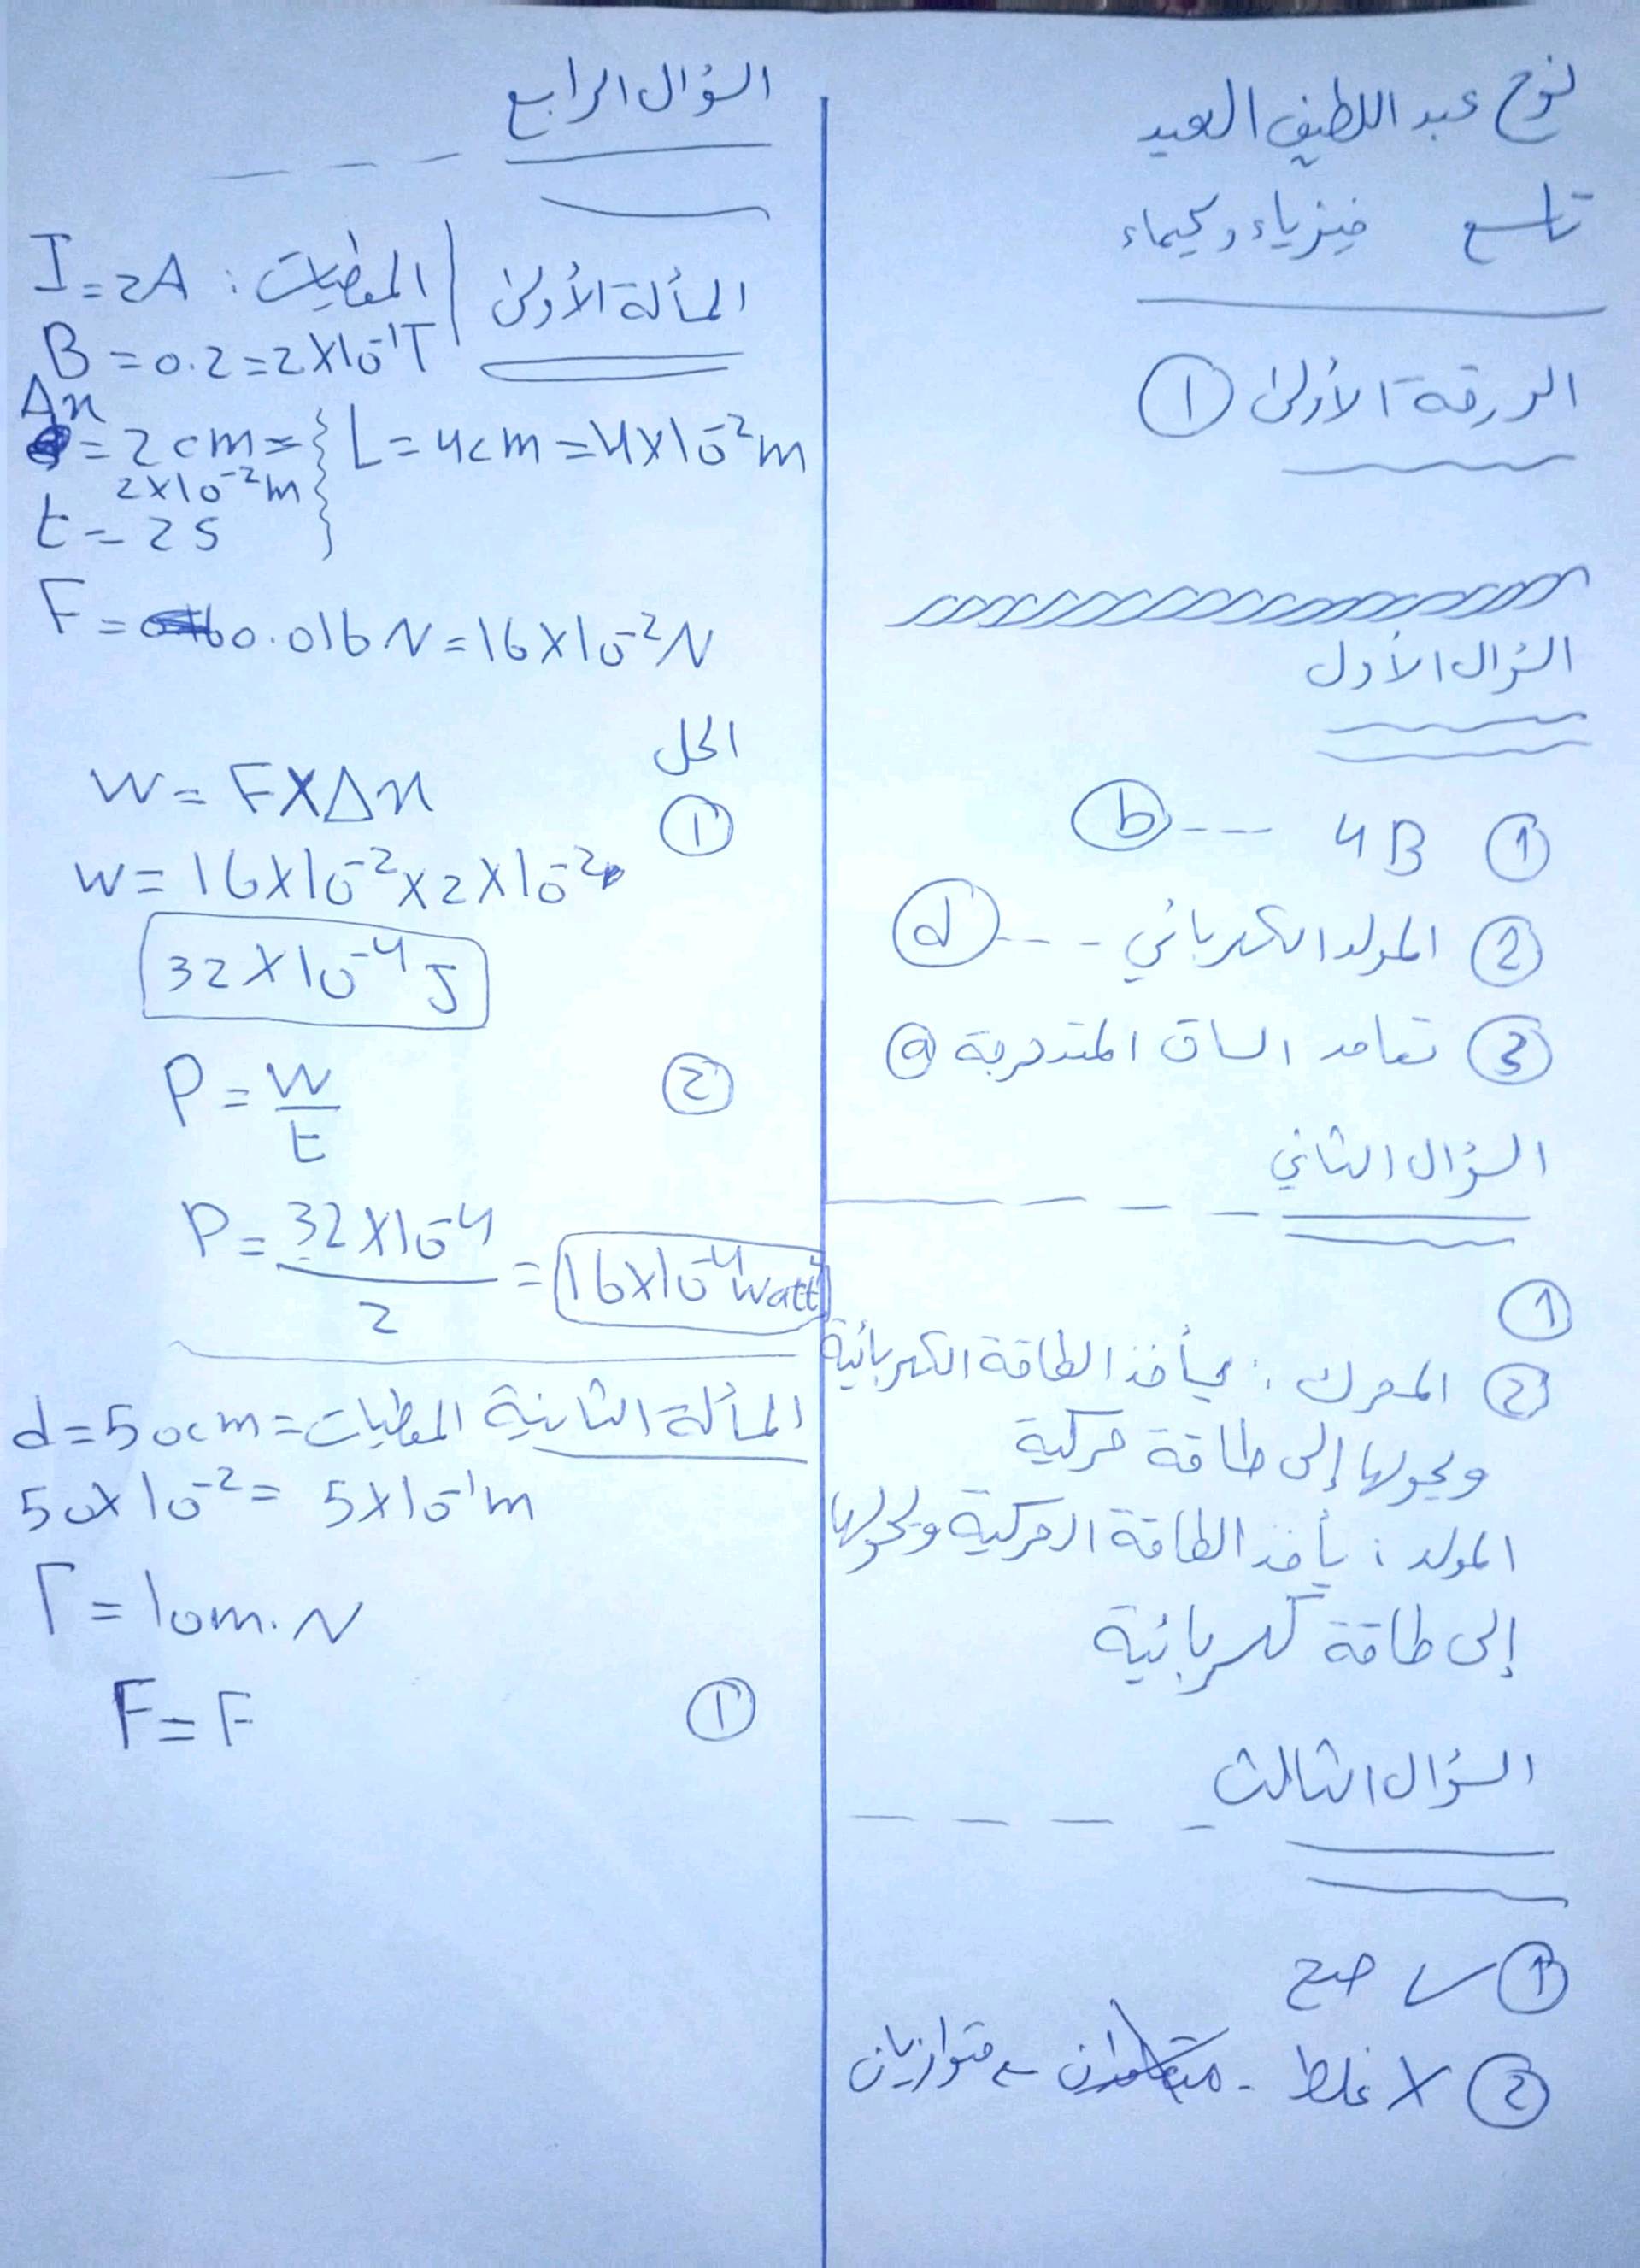 نوح عبد اللطيف العيد
تاسع فيزياء وكيمياء
الورقة الأولى ①
السؤال الأول
① 4B --- ⓑ
② المولد الكهربائي --- ⓓ
③ تعامد الساق المتدحرجة ⓐ
السؤال الثاني
①
② المحرك : يأخذ الطاقة الكهربائية
ويحولها إلى طاقة حركية
المولد : يأخذ الطاقة الحركية ويحولها
إلى طاقة كهربائية
السؤال الثالث
① ✓ صح
② X غلط - متوازيان
السؤال الرابع
المسألة الأولى | المعطيات : I = 2A
B = 0.2 = 2×10⁻¹T
Δx = 2cm = 2×10⁻²m
L = 4cm = 4×10⁻²m
t = 2s
F = 0.016N = 16×10⁻²N
الحل
① W = F×Δx
W = 16×10⁻²×2×10⁻²
32×10⁻⁴J
② P = W/t
P = 32×10⁻⁴/2 = 16×10⁻⁴Watt
المسألة الثانية المعطيات = d = 50cm =
50×10⁻² = 5×10⁻¹m
Γ = 10m.N
① F = F